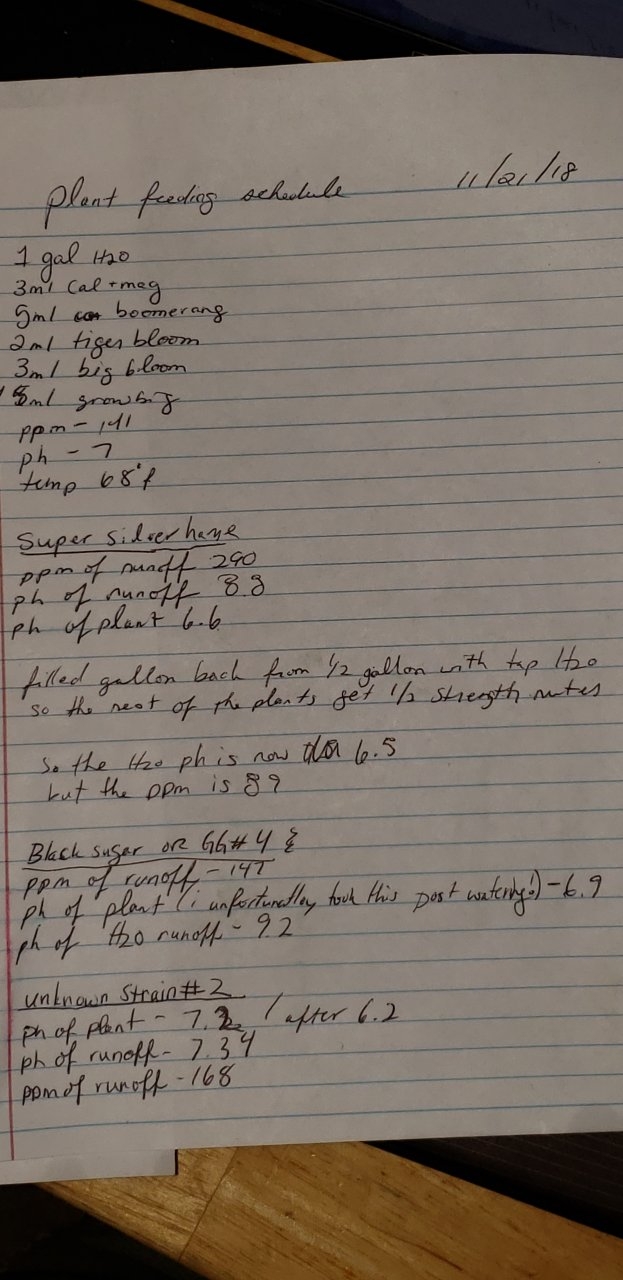 plant feeding schedule 11/21/18
1 gal H20
3ml Cal+mag
5ml boomerang
2ml tiger bloom
3ml big bloom
5ml growbig
ppm - 141
ph - 7
temp 68°f
Super Silver haze
ppm of runoff 290
ph of runoff 8.8
ph of plant 6.6
filled gallon back from 1/2 gallon with tap H20
so the rest of the plants get 1/2 strength nutes
So the H20 ph is now 6.5
but the ppm is 89
Black sugar or GG#4
ppm of runoff - 147
ph of plant (i unfortunatley took this post watering!) - 6.9
ph of H20 runoff - 9.2
unknown strain #2
ph of plant - 7.2 / after 6.2
ph of runoff - 7.34
ppm of runoff - 168